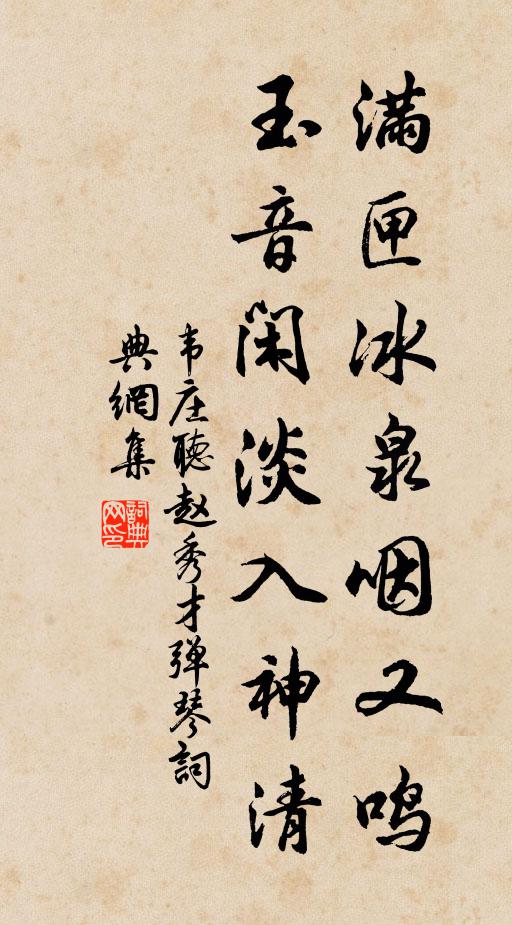 满匣冰泉咽又鸣
玉音闲淡入神清
韦庄聽赵秀才弹琴詞
典網集
詞典网印